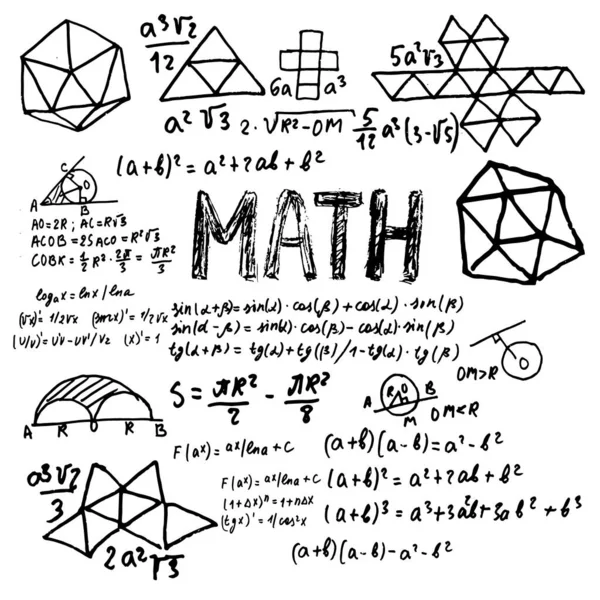 a³√2/12
6a a³
5a²√3
a²√3
2·√R²-OM
5/12 a³(3-√5)
(a+b)² = a²+2ab+b²
C
O
A B
AO=2R; AC=R√3
ACOB=2SACO=R²√3
COBK=1/2 R²·2π/3=πR²/3
MATH
logₐx=lnx/lna
(√x)'=1/2√x
(u/v)'=u'v-uv'/v2 (x)'=1
sin(α+β)=sin(α)·cos(β)+cos(α)·sin(β)
sin(α-β)=sin(α)·cos(β)-cos(α)·sin(β)
tg(α+β)=tg(α)+tg(β)/1-tg(α)·tg(β)
O
OM>R
A R O R B
S=πR²/2-πR²/8
R O
A B
M OM<R
F(aˣ)=aˣ/lna+C
(a+b)(a-b)=a²-b²
a³√2/3
2a²√3
F(aˣ)=aˣ/lna+C
(1+Δx)ⁿ=1+nΔx
(tgx)'=1/cos²x
(a+b)²=a²+2ab+b²
(a+b)³=a³+3a²b+3ab²+b³
(a+b)(a-b)-a²-b²